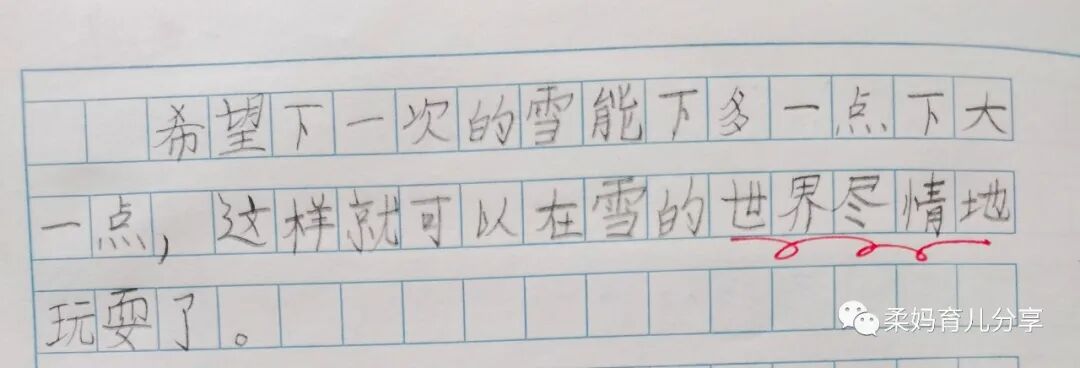 希望下一次的雪能下多一点下大
一点，这样就可以在雪的世界尽情地
玩耍了。
柔妈育儿分享